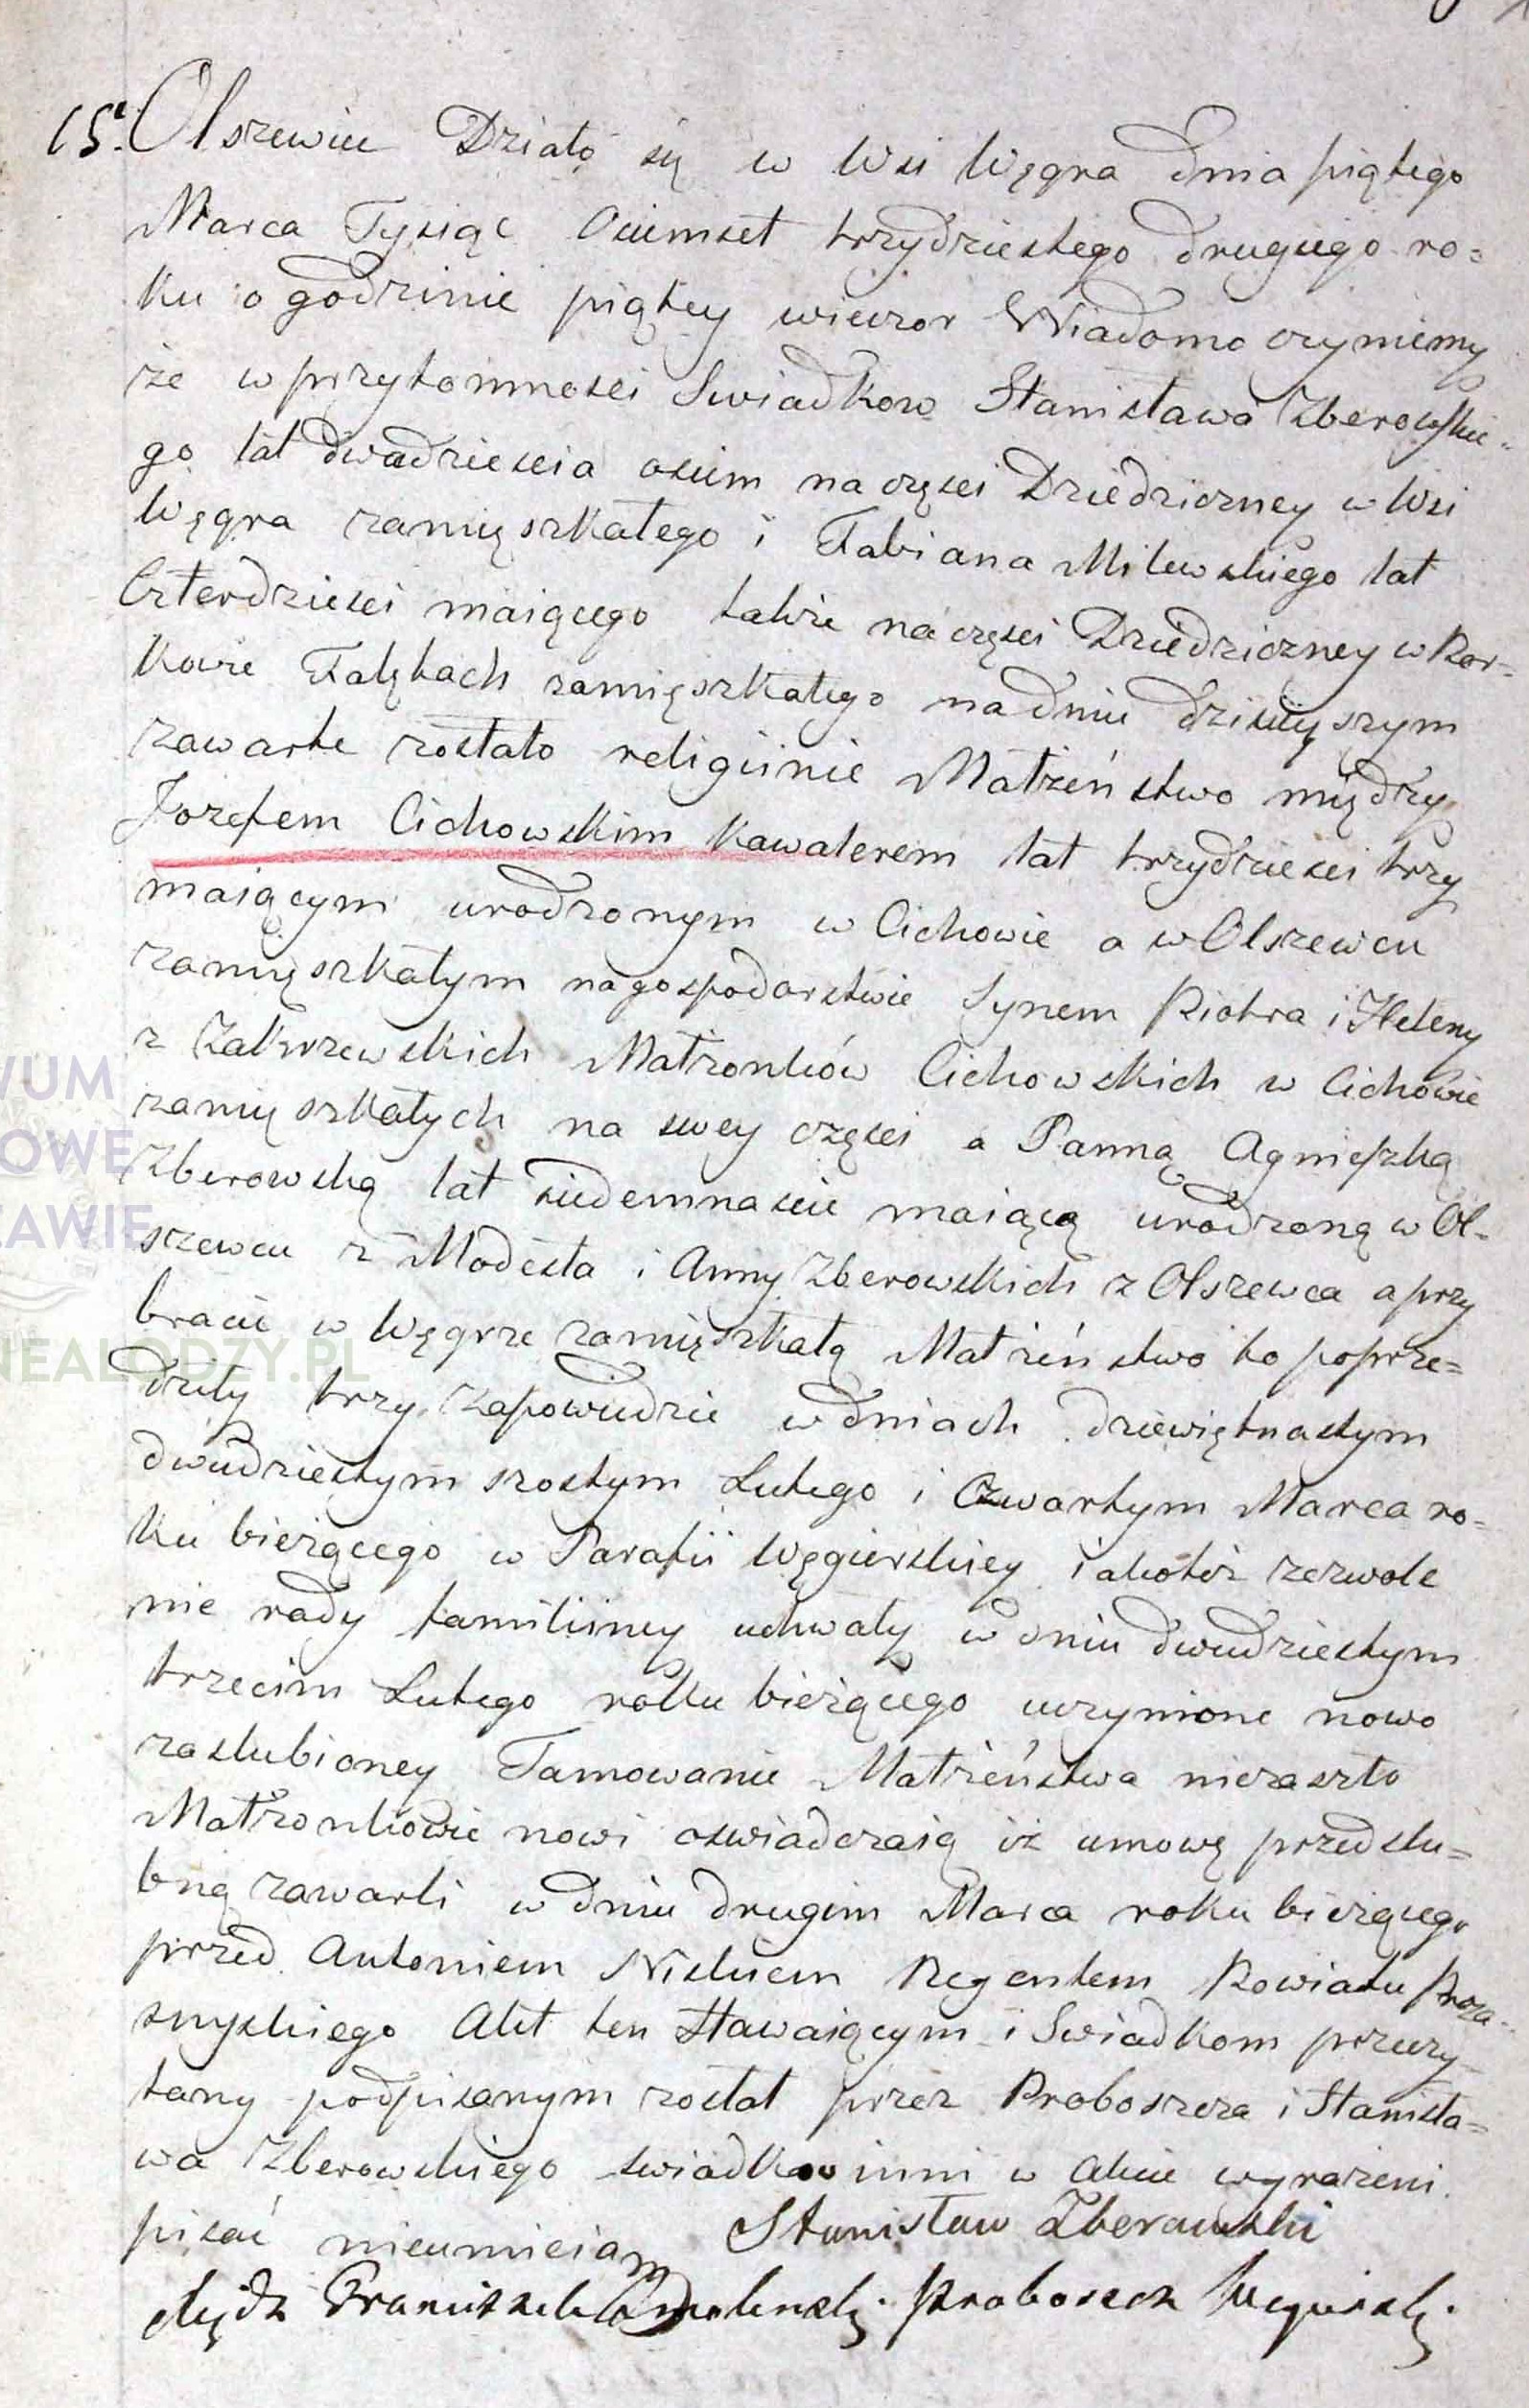 15. Olszewiec Działo się w Wsi Węgra dnia piątego
Marca Tysiąc Osiemset trzydziestego drugiego ro=
ku o godzinie piątey wieczor Wiadomo czyniemy
że w przytomności Swiadkow Stanisława Zberowskie=
go lat dwadziescia osiem na części Dziedziczney w Wsi
Węgra zamięszkałego i Fabiana Milewskiego lat
Czterdziesci maiącego takze na części Dziedziczney w
Falętach zamięszkałego na dniu dzisieyszym
zawarte zostało religiinie Małżeństwo między
Jozefem Cichowskim Kawalerem lat trzydziesci trzy
maiącym urodzonym w Cichowie a w Olszewcu
zamięszkałym na gospodarstwie Synem Piotra i Heleny
z Zakrzewskich Małzonków Cichowskich w Cichowie
zamięszkałych na swey części a Panną Agnieszką
Zberowską lat siedemnascie maiącą urodzoną w Ol=
szewcu z Modesta i Anny Zberowskich z Olszewca a przy
bracie w Węgrze zamięszkałą Małżeństwo to poprze=
dziły trzy Zapowiedzie w dniach dziewiętnastym
dwudziestym szostym Lutego i Czwartym Marca ro=
ku bieżącego w Parafii Węgierskiey iakotéż zezwole
nie rady familiiney uchwały w dniu dwudziestym
trzecim Lutego roku bieżącego uczynione nowo
zaslubioney Tamowanie Małżeństwa niezaszło
Małżonkowie nowi oswiadczaią iż umowę przedslu=
bną zawarli w dniu drugim Marca roku bieżącego
przed Antoniem Regentem Powiatu Prza=
snyskiego Akt ten Stawaiącym i Swiadkom przeczy=
tany podpisanym został przez Proboszcza i Stanisła=
wa Zberowskiego swiadkow inni w Akcie wyrażeni
pisać nieumieią Stanisław Zberowski
Xiądz Franciszek Proboszcz Węgierski